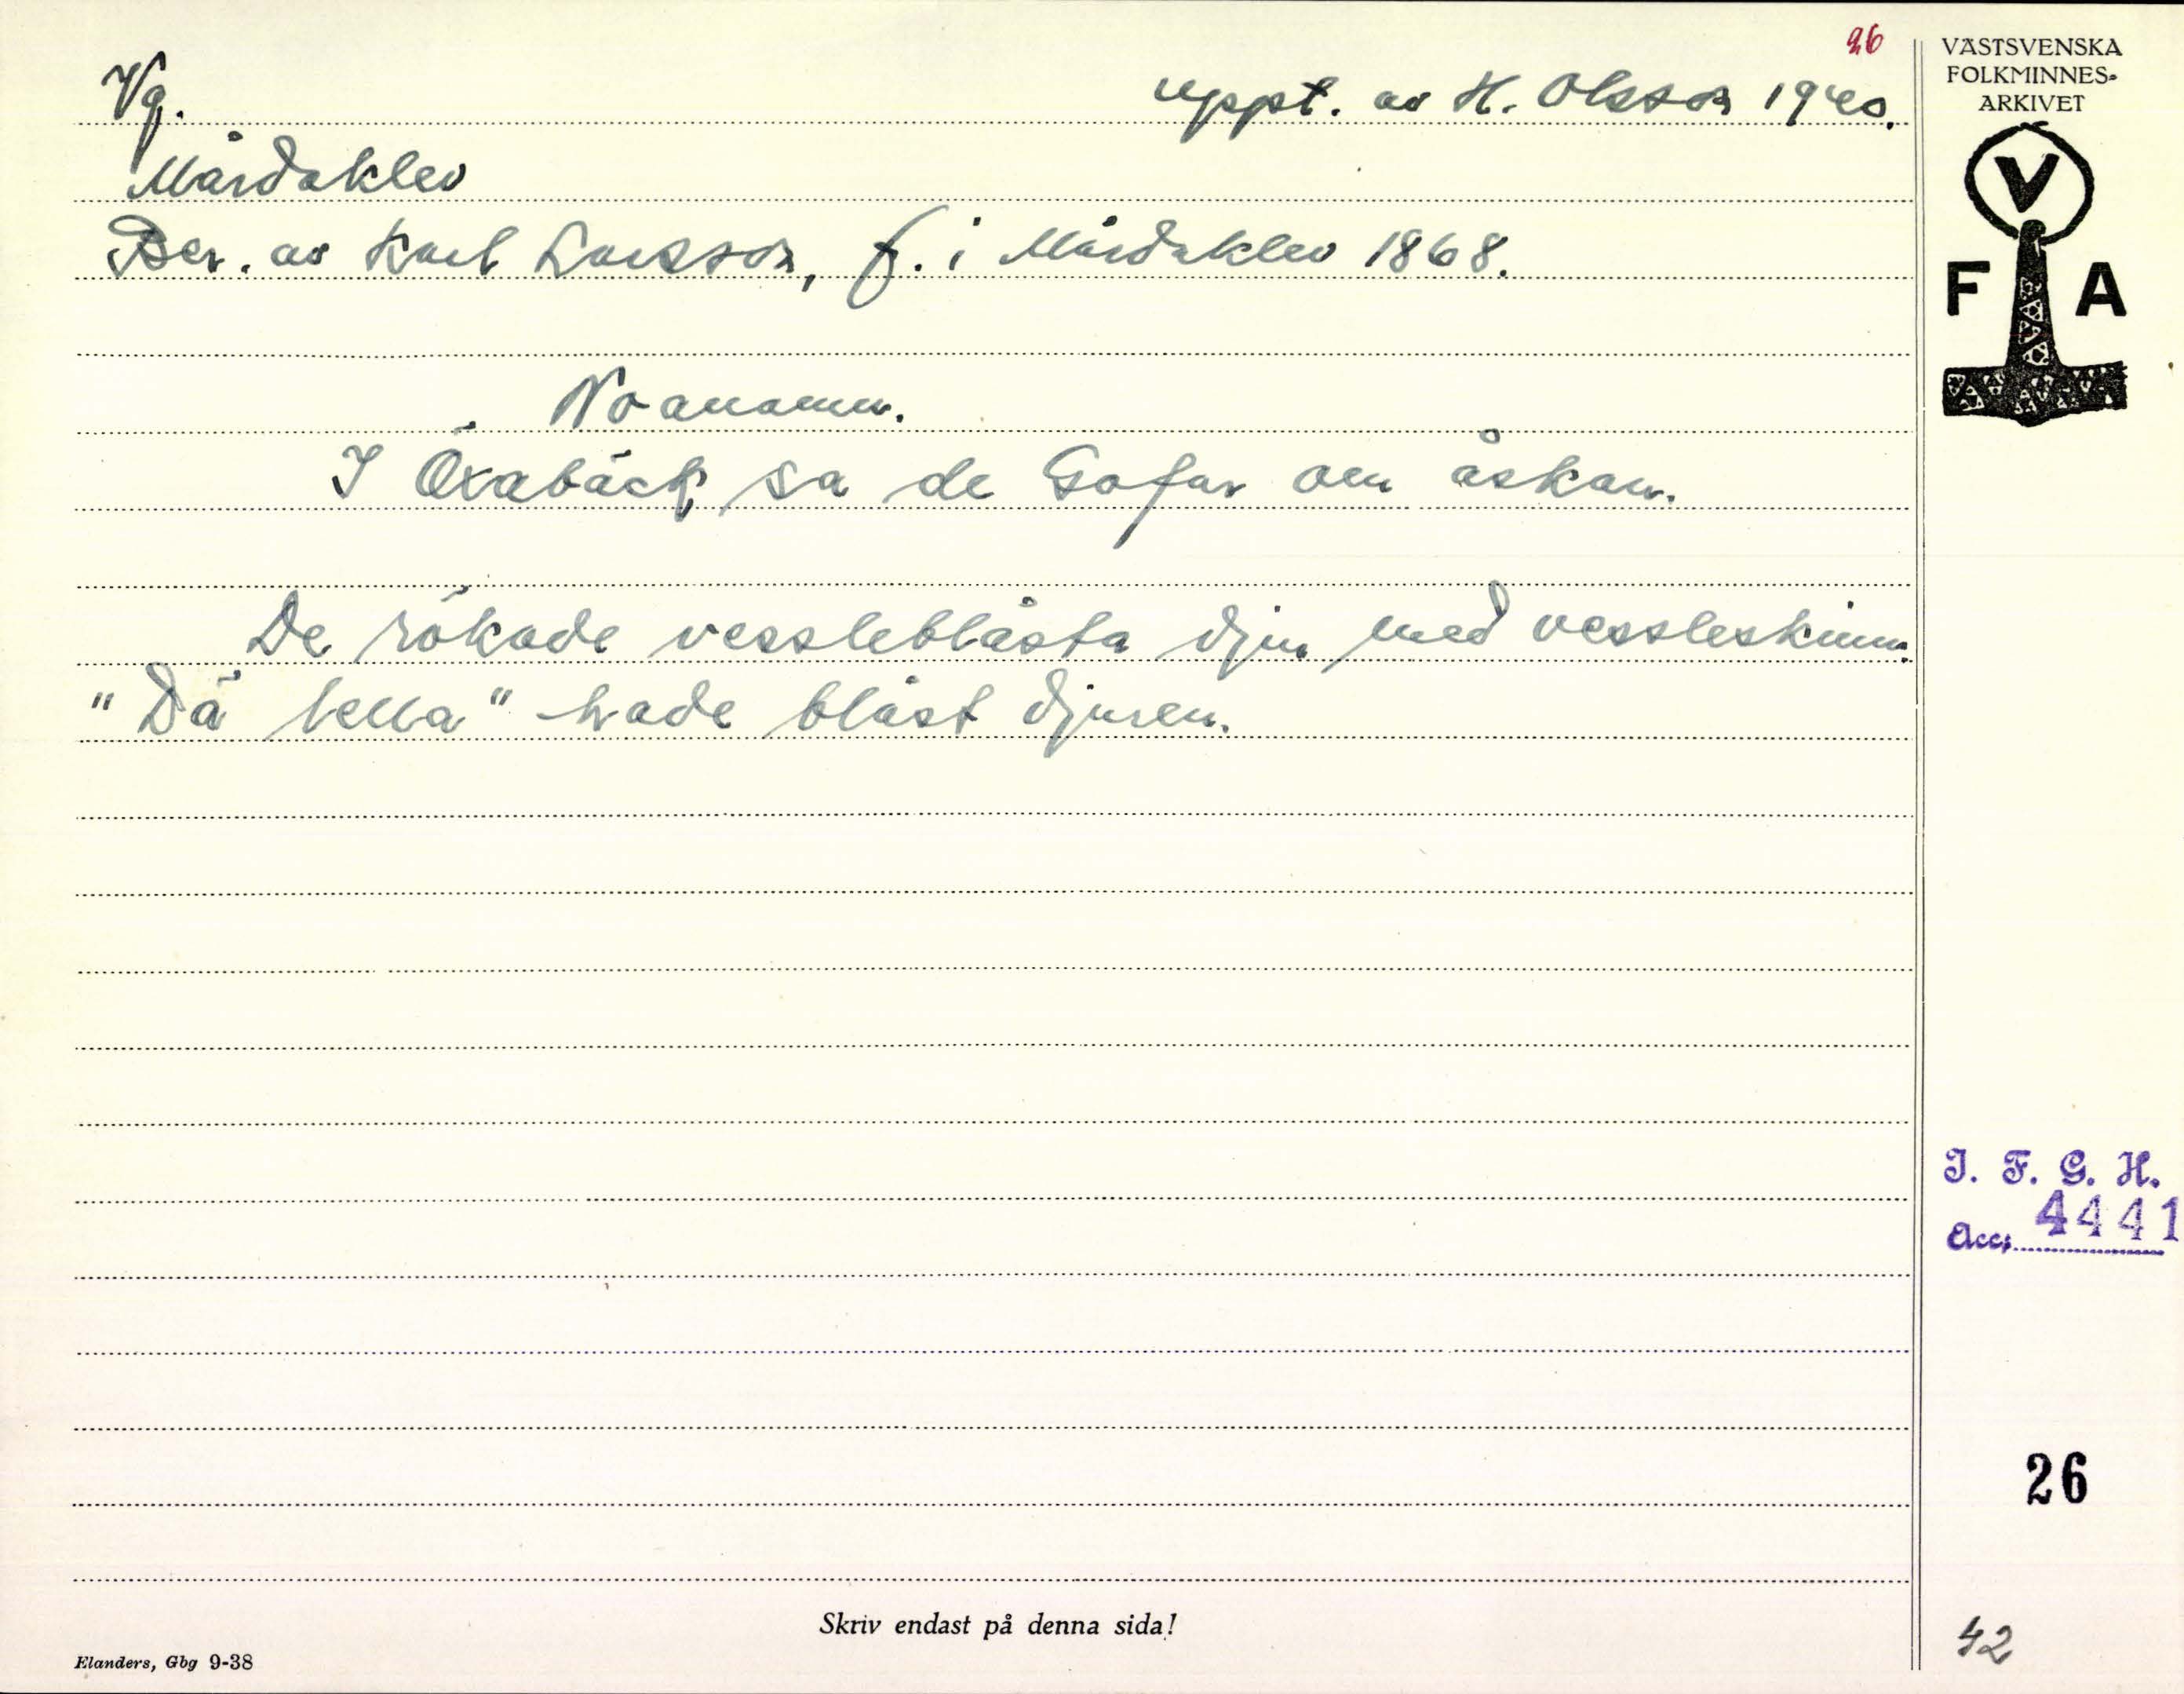 26
Vg.
uppt. av H. Olsson 1940.
Mårdaklev
Ber. av Karl Larsson, f. i Mårdaklev 1868.
Noanamn.
I Öxabäck sa de Gofar om åskan.
De rökade vessleblåsta djur med vessleskinn.
"Dä lella" hade blåst djuren.
VÄSTSVENSKA
FOLKMINNES-
ARKIVET
V
F A
I. F. G. H.
Acc. 4441
26
42
Skriv endast på denna sida!
Elanders, Gbg 9-38